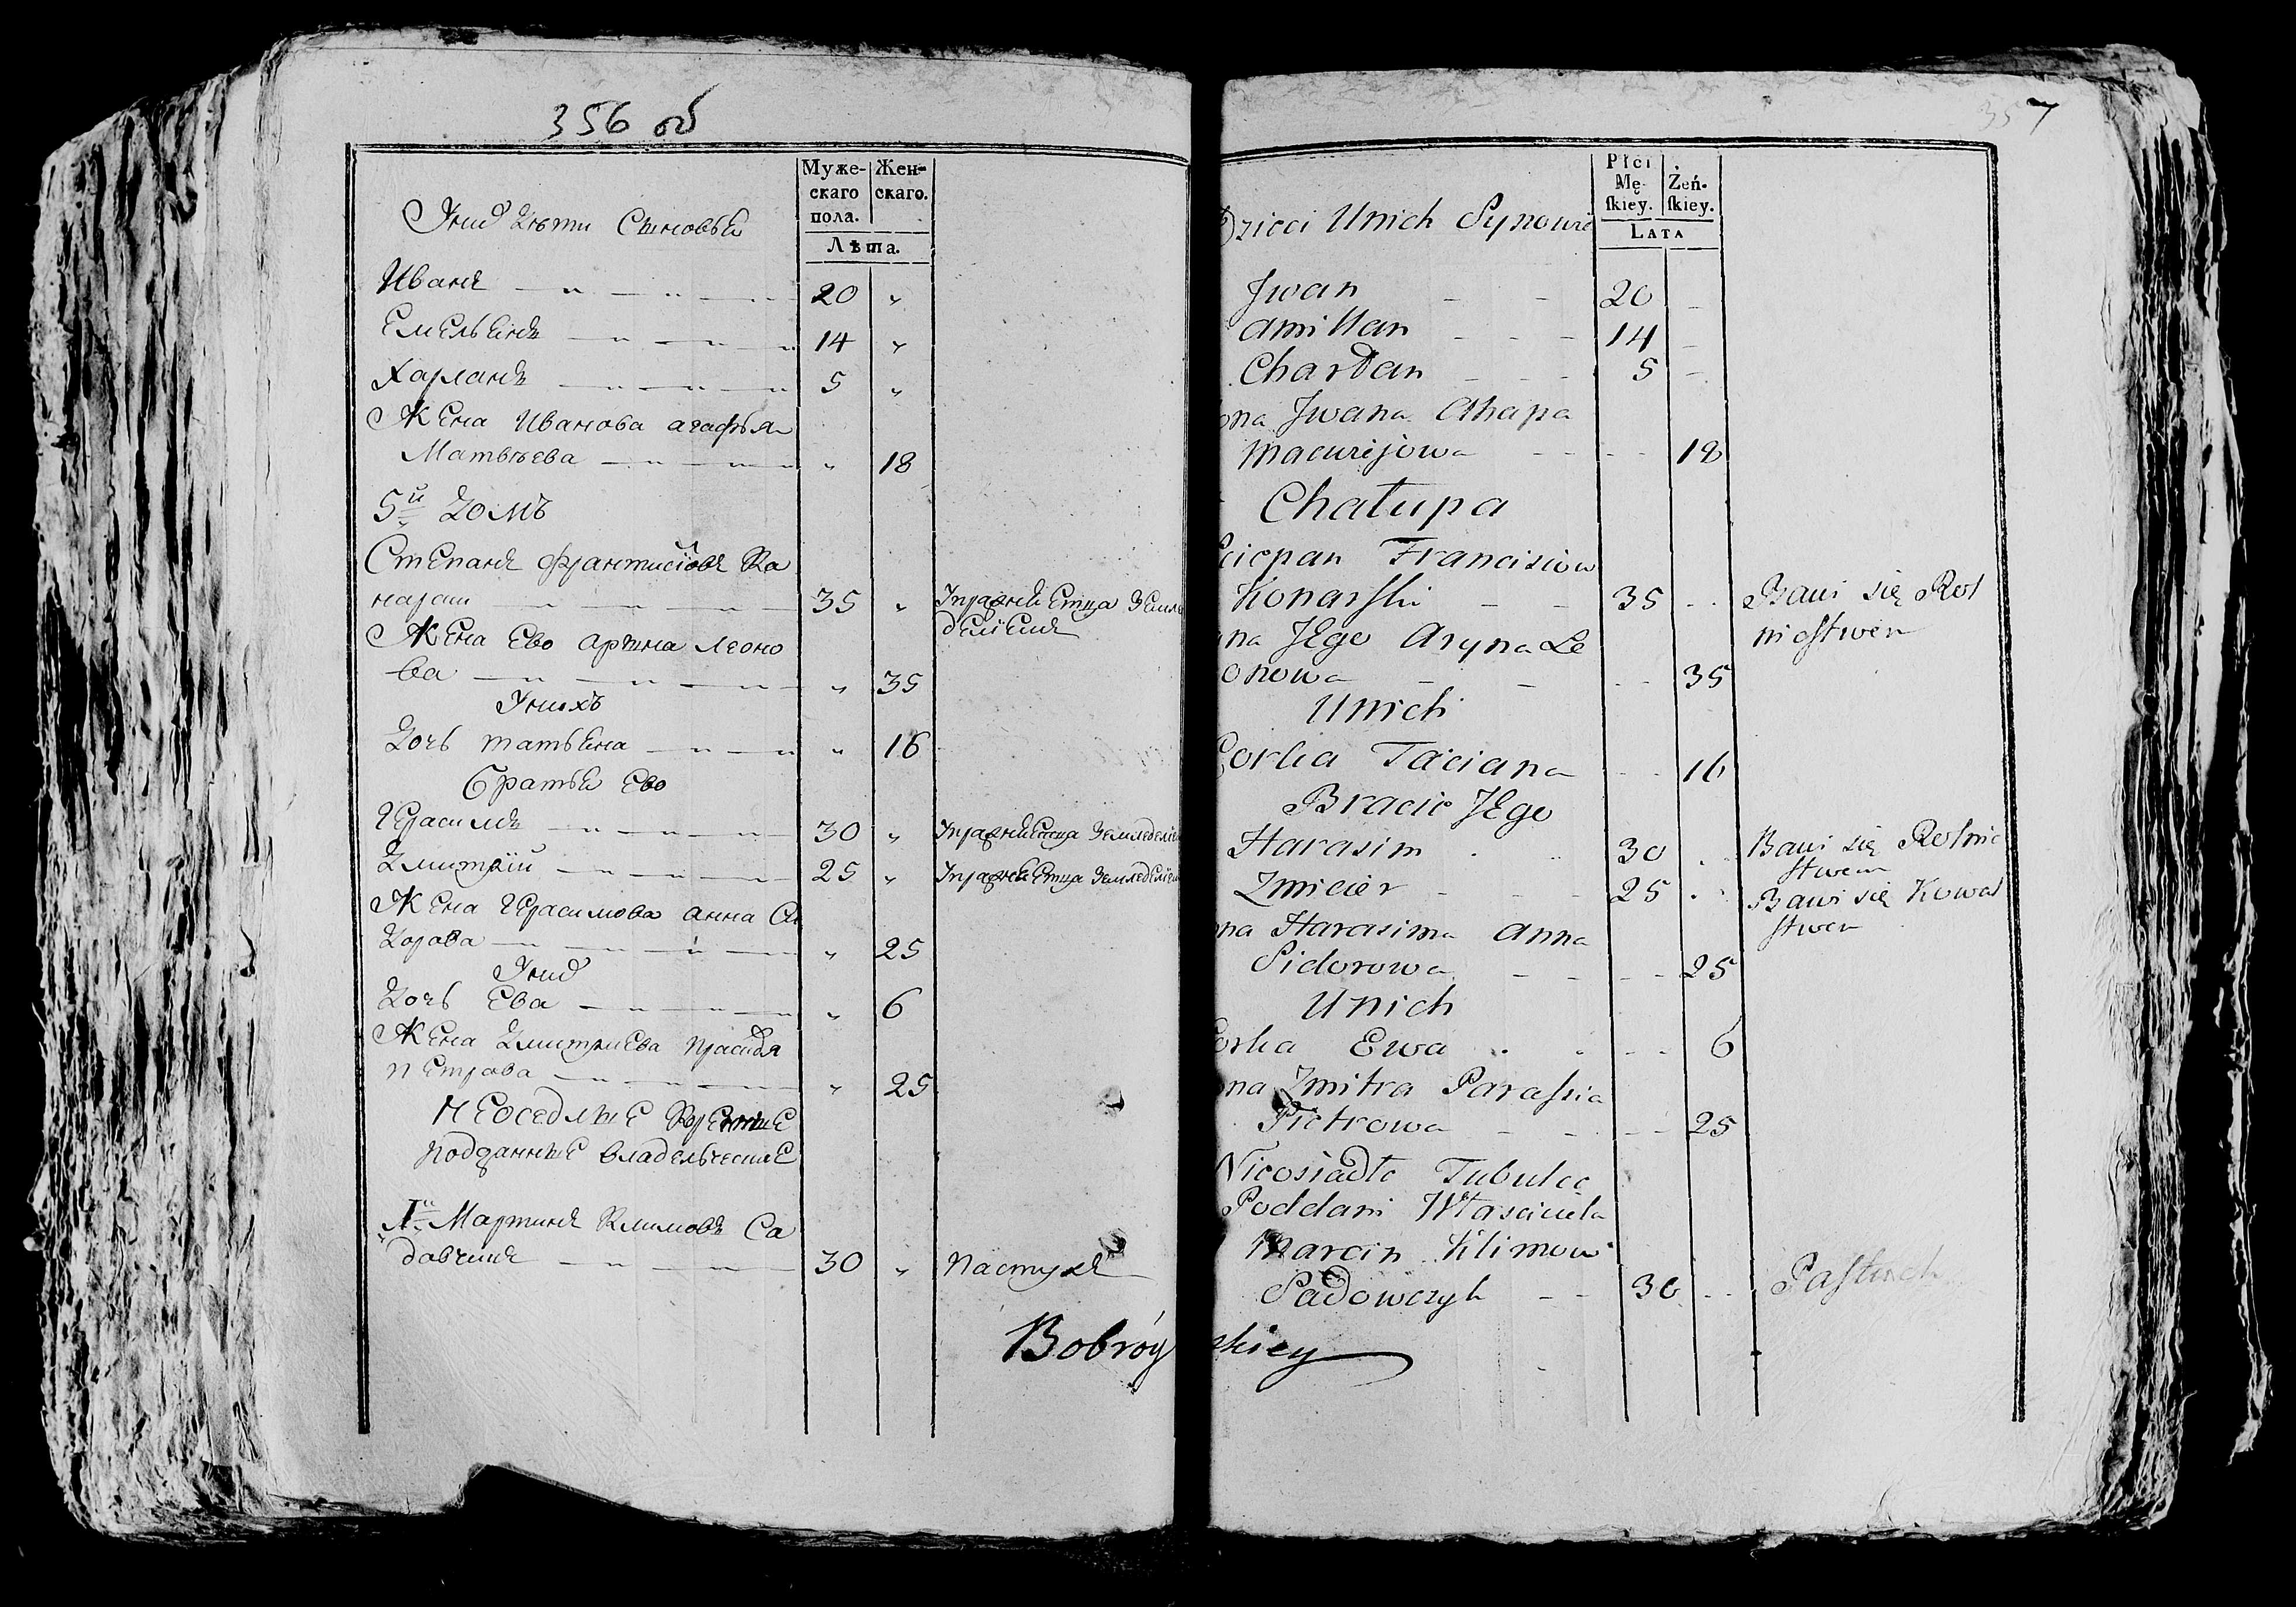 356 об
Муже-
скаго
пола.
Жен-
скаго.
Лѣта.
У нихъ Дѣти Сыновья
Иванъ 20 "
Емельянъ 14 "
Харланъ 5 "
Жена Иванова агафья
Матвѣева " 18
5й Домъ
Степанъ Францисковъ Ко
нарски 35 " Упражняетца Земле
делïемъ
Жена Ево арына леоно
ва " 35
У нихъ
Дочь татьяна " 16
Братья Ево
Герасимъ 30 " Упражняетца Земледелïем
Дмитрïй 25 " Упражняетца Земледелïем
Жена Герасимова анна Си
дорова " 25
У них
Дочь Ева " 6
Жена Дмитриева
петрова " 25
неоседлые
подданные владельческие
1й Мартинъ Климовъ Са
довчикъ 30 " пастухъ
Bobróy
357
Płci
Mę-
skiey.
Żeń-
skiey.
LATA
Dzieci Unich Synowie
Jwan 20
amillan 14
Charłan 5
ona Jwana Ahapa
Macwiejowa 18
Chałupa
ciepan Francisiow
Konarski 35 Bawi się Rol
nictwem
na Jego Aryna Le
onowa 35
Unich
Corka Taciana 16
Bracie Jego
Harasim 30 Bawi się Rolnic
stwem
Zmicier 25 Bawi się Kowal
stwem
ona Harasima anna
Sidorowa 25
Unich
Corka Ewa 6
ona Zmitra Paraskia
Pietrowa 25
Nieosiadłe Tubulce
Poddani Własciciela
Marcin Klimow
Sadowczyk 30 Pastuch
skiey